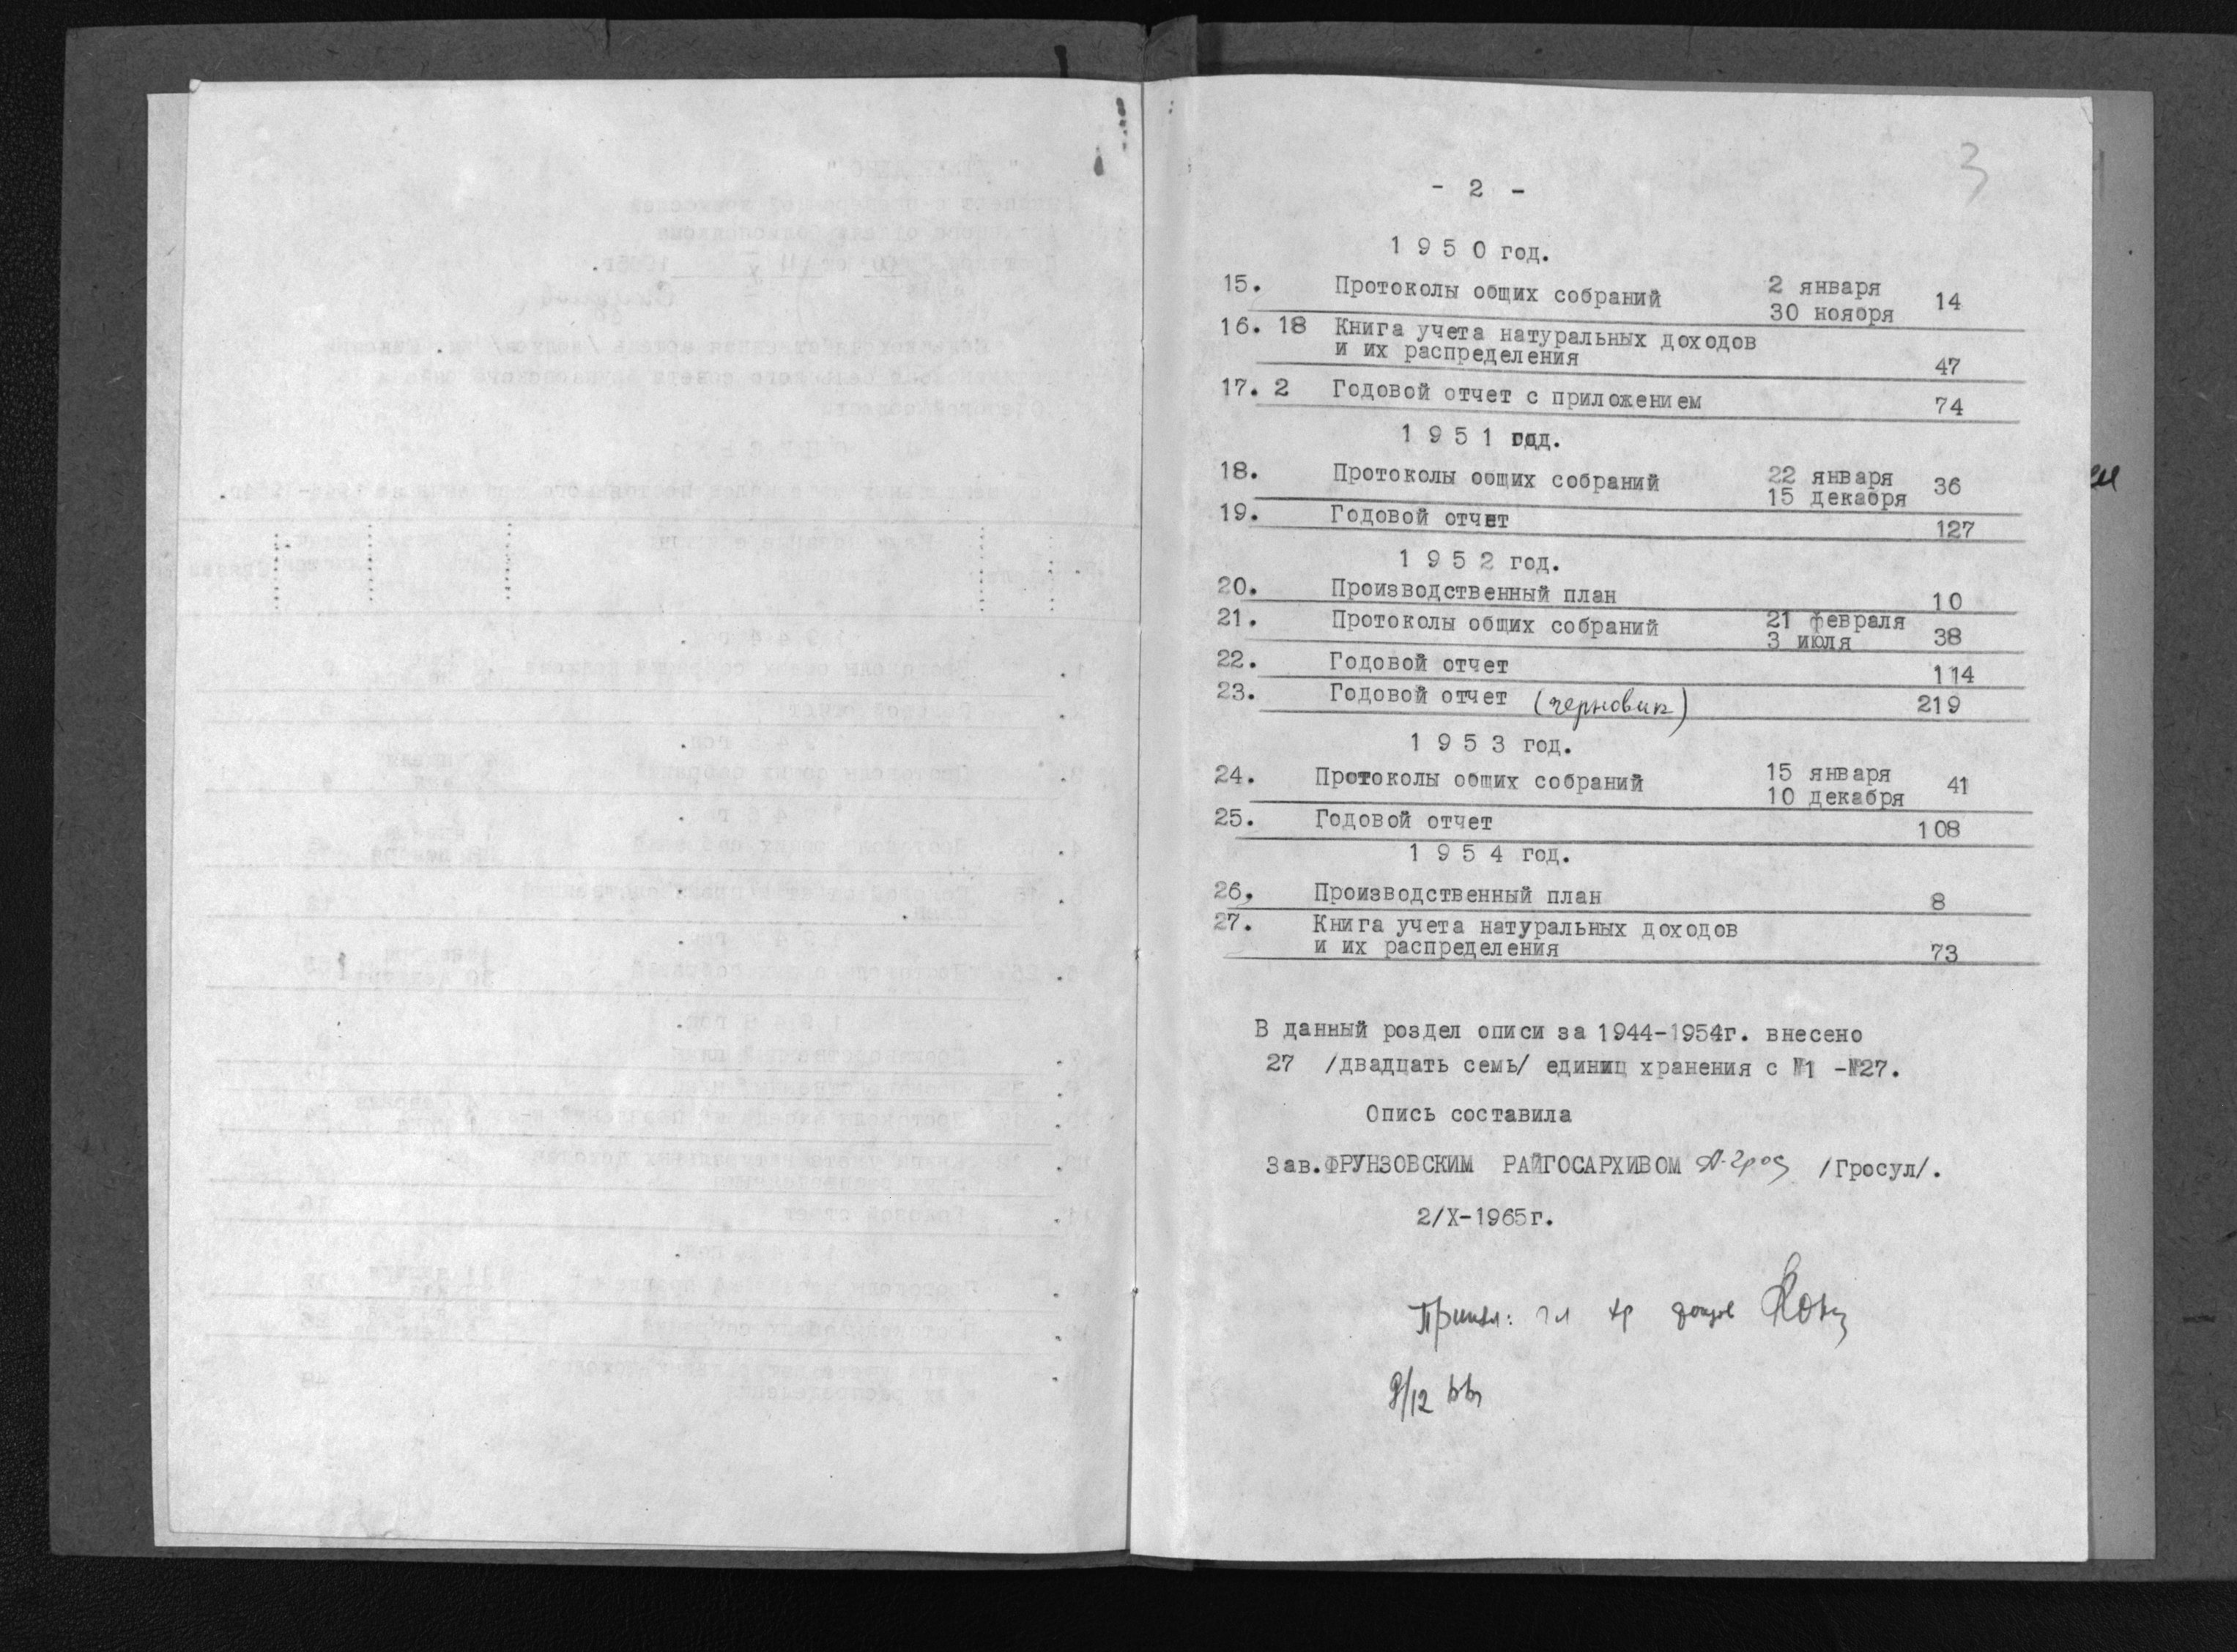 3
- 2 -
1 9 5 0 год.
15. Протоколы общих собраний 2 января 14
30 ноября
16. 18 Книга учета натуральных доходов
и их распределения 47
17. 2 Годовой отчет с приложением 74
1 9 5 1 год.
18. Протоколы общих собраний 22 января 36
15 декабря
19. Годовой отчет 127
1 9 5 2 год.
20. Производственный план 10
21. Протоколы общих собраний 21 февраля 38
3 июля
22. Годовой отчет 114
23. Годовой отчет (черновик) 219
1 9 5 3 год.
24. Протоколы общих собраний 15 января 41
10 декабря
25. Годовой отчет 108
1 9 5 4 год.
26. Производственный план 8
27. Книга учета натуральных доходов
и их распределения 73
В данный роздел описи за 1944-1954г. внесено
27 /двадцать семь/ единиц хранения с №1 -№27.
Опись составила
Зав.ФРУНЗОВСКИМ РАЙГОСАРХИВОМ /Гросул/.
2/X-1965г.
9/12